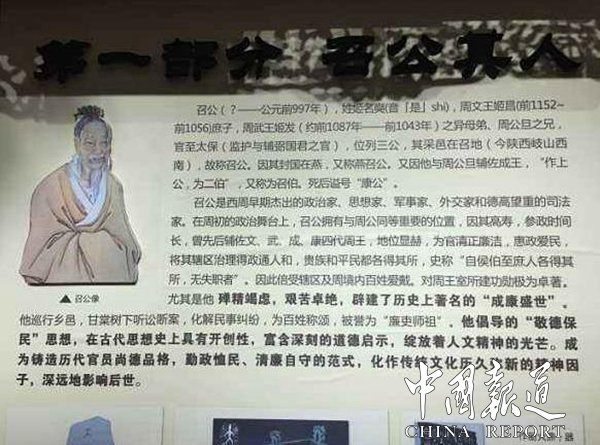 第一部分 召公其人
召公（？——公元前997年），姓姬名奭(音「是」shi)，周文王姬昌(前1152~
前1056)庶子，周武王姬发（约前1087年——前1043年）之异母弟、周公旦之兄，
官至太保（监护与辅弼国君之官），位列三公，其采邑在召地（今陕西岐山西
南），故称召公。因其封国在燕，又称燕召公。又因他与周公旦辅佐成王，“作上
公，为二伯”，又称为召伯。死后谥号“康公”。
召公是西周早期杰出的政治家、思想家、军事家、外交家和德高望重的司法
家。在周初的政治舞台上，召公拥有与周公同等重要的位置，因其高寿，参政时间
长，曾先后辅佐文、武、成、康四代周王，地位显赫，为官清正廉洁，惠政爱民，
将其辖区治理得政通人和，贵族和平民都各得其所，史称“自侯伯至庶人各得其
所，无失职者”。因此倍受辖区及周境内百姓爱戴。对周王室所建功勋极为卓著。
尤其是他 殚精竭虑，艰苦卓绝，辟建了历史上著名的“成康盛世”。
▲召公像
他巡行乡邑，甘棠树下听讼断案，化解民事纠纷，为百姓称颂，被誉为“廉吏师祖”。他倡导的“敬德保
民”思想，在古代思想史上具有开创性，富含深刻的道德启示，绽放着人文精神的光芒。成
为铸造历代官员尚德品格，勤政恤民、清廉自守的范式，化作传统文化历久弥新的精神因
子，深远地影响后世。
中国报道
CHINA REPORT